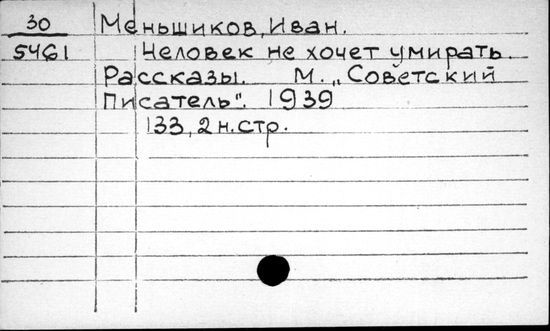 30 Меньшиков, Иван.
5461 Человек не хочет умирать.
Рассказы. М. „Советский
Писатель". 1939
133, 2 н. стр.